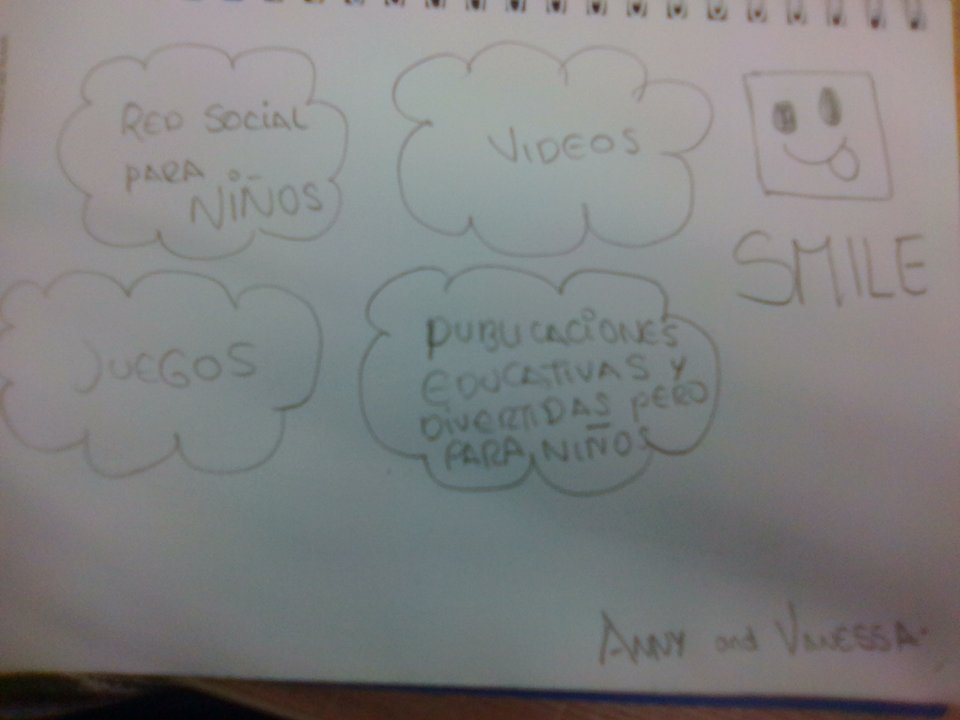 RED SOCIAL
PARA
NIÑOS
VIDEOS
SMILE
JUEGOS
PUBLICACIONES
EDUCATIVAS Y
DIVERTIDAS PERO
PARA NIÑOS
ANNY and VANESSA